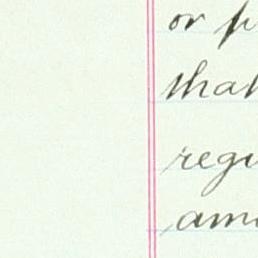 or p
that
regu
amo